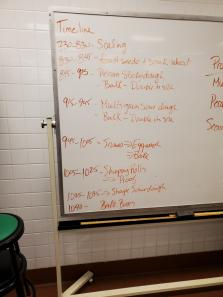 Timeline
730-830- Scaling
830-845- toast seeds & soak wheat
845-915- Pecan Sourdough
Bulk- Double in size
915-945- Multigrain Sourdough
Bulk- Double in size
Bulk
1005-1025- Shaping Rolls
Proof
Shape Sourdough
1040- Bake Buns
Pr
Mu
Peca